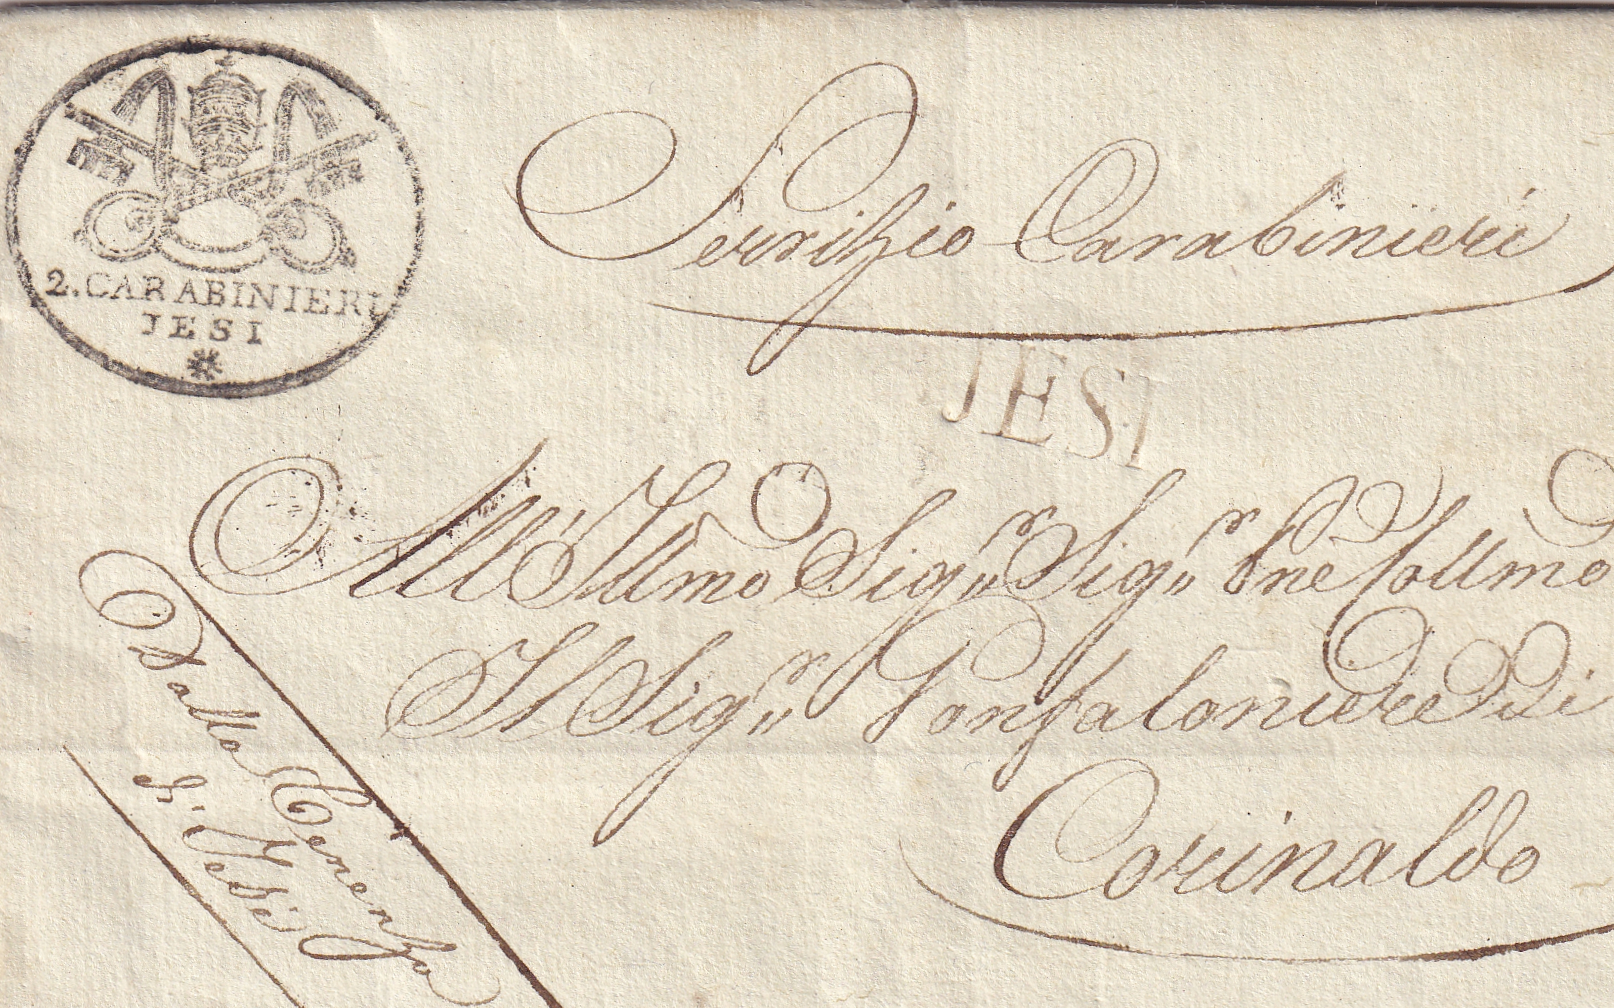 2. CARABINIERI
JESI
Servizio Carabinieri
JESI
All' Illmo Sigr Sigr Pne Collmo
Il Sigr Gonfaloniere di
Corinaldo
Dalla Tenenza
di Jesi